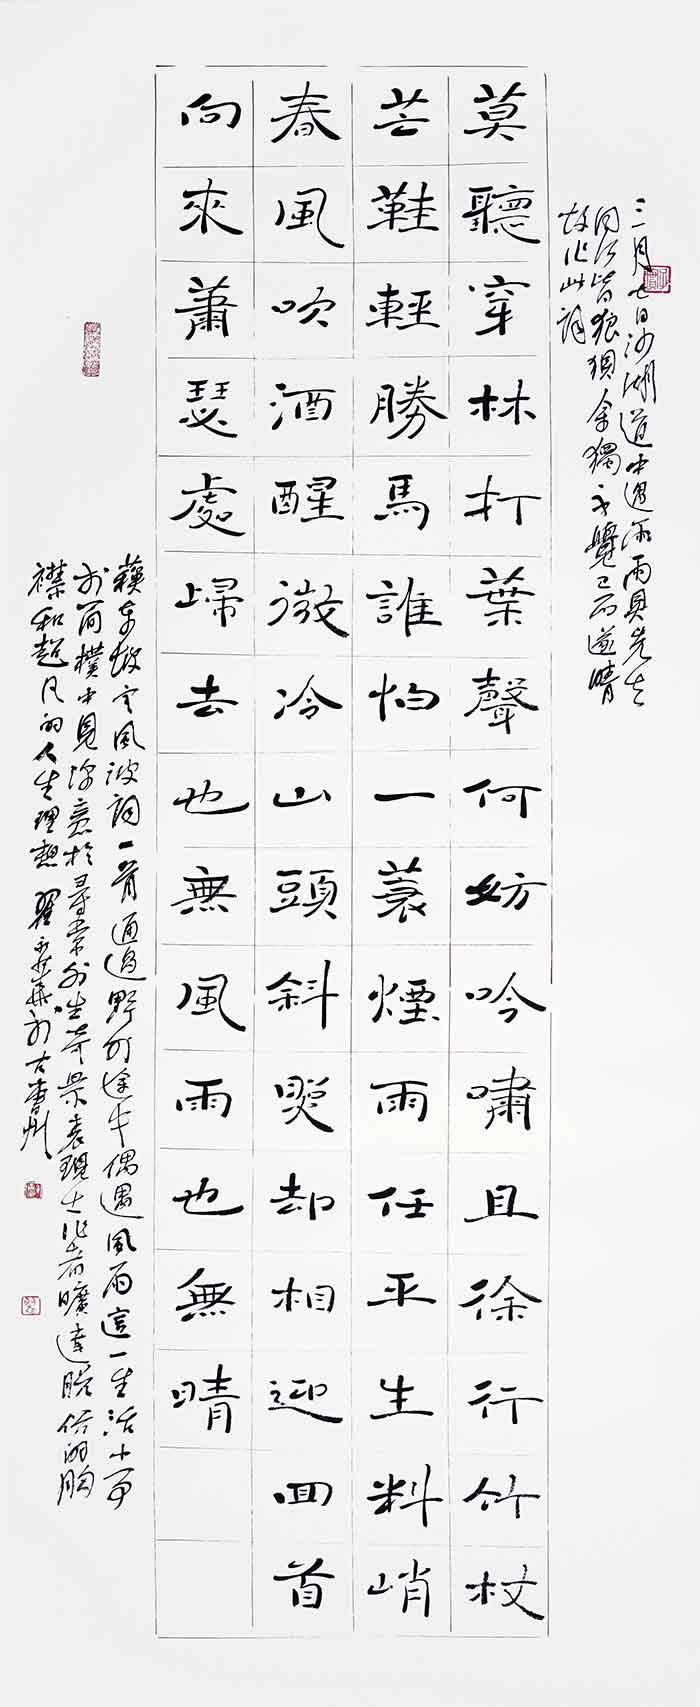 三月七日沙湖道中遇雨雨具先去
同行皆狼狽余獨不覺已而遂晴
故作此詞
莫聽穿林打葉聲何妨吟嘯且徐行竹杖
芒鞋輕勝馬誰怕一蓑煙雨任平生料峭
春風吹酒醒微冷山頭斜照却相迎回首
向來蕭瑟處歸去也無風雨也無晴
蘇東坡定風波詞一首通過野外途中偶遇風雨這一生活小事
於簡樸中見深意於尋常處生奇景表現出作者曠達脫俗的胸
襟和超凡的人生理想 翟永華於古青州